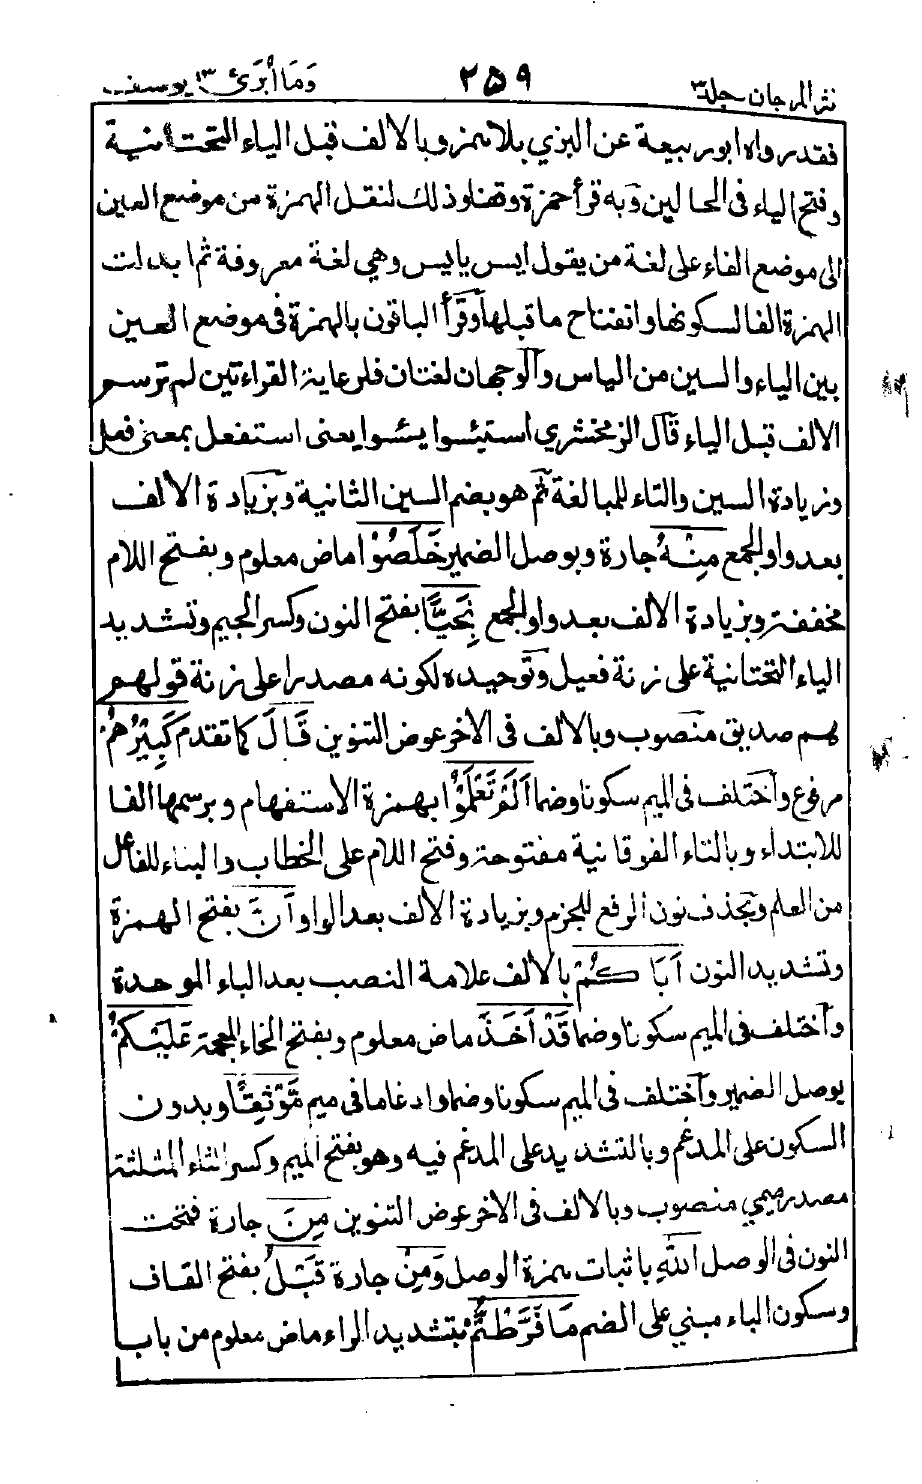 نثر المرجان جلد٣
٢٥٩
وَمَا أُبَرِّئُ ١٣ يوسف
فقد رواه ابو ربيعة عن البزي بلا همز وبالالف قبل الياء التحتانية
وفتح الياء فى الحالين وبه قرأ حمزة وقفا وذلك لنقل الهمزة من موضع العين
الى موضع الفاء على لغة من يقول ايس يايس وهي لغة معروفة ثم ابدلت
الهمزة الفا لسكونها وانفتاح ما قبلها وقرأ الباقون بالهمزة فى موضع العين
بين الياء والسين من الياس والوجهان لغتان فلرعاية القراءتين لم ترسم
الالف قبل الياء قال الزمخشري استيئسوا يئسوا يعنى استفعل بمعنى فعل
وزيادة السين والتاء للمبالغة ثم هو بضم السين الثانية وبزيادة الالف
بعد واو الجمع مِنْهُ جارة وبوصل الضمير خَلَصُوْا ماض معلوم وبفتح اللام
مخففة وبزيادة الالف بعد واو الجمع نَجِيًّا بفتح النون وكسر الجيم وتشديد
الياء التحتانية على زنة فعيل وتوحيده لكونه مصدرا على زنة قولهم
هم صديق منصوب وبالالف فى الاخر عوض التنوين قَالَ كما تقدم كَبِيْرُهُمْ
مرفوع واختلف فى الميم سكونا وضما اَلَمْ تَعْلَمُوْا بهمزة الاستفهام وبرسمها الفا
للابتداء وبالتاء الفوقانية مفتوحة وفتح اللام على الخطاب والبناء للفاعل
من العلم وبحذف نون الرفع للجزم وبزيادة الالف بعد الواو اَنَّ بفتح الهمزة
وتشديد النون اَبَاكُمْ بالالف علامة النصب بعد الباء الموحدة
واختلف فى الميم سكونا وضما قَدْ اَخَذَ ماض معلوم وبفتح الخاء المعجمة عَلَيْكُمْ
بوصل الضمير واختلف فى الميم سكونا وضما وادغاما فى ميم مَّوْثِقًا وبدون
السكون على المدغم وبالتشديد على المدغم فيه وهو بفتح الميم وكسر الثاء المثلثة
مصدر ميمي منصوب وبالالف فى الاخر عوض التنوين مِنَ جارة فتحت
النون فى الوصل اللهِ باثبات همزة الوصل وَمِنْ جارة قَبْلُ بفتح القاف
وسكون الباء مبني على الضم مَا فَرَّطْتُّمْ بتشديد الراء ماض معلوم من باب